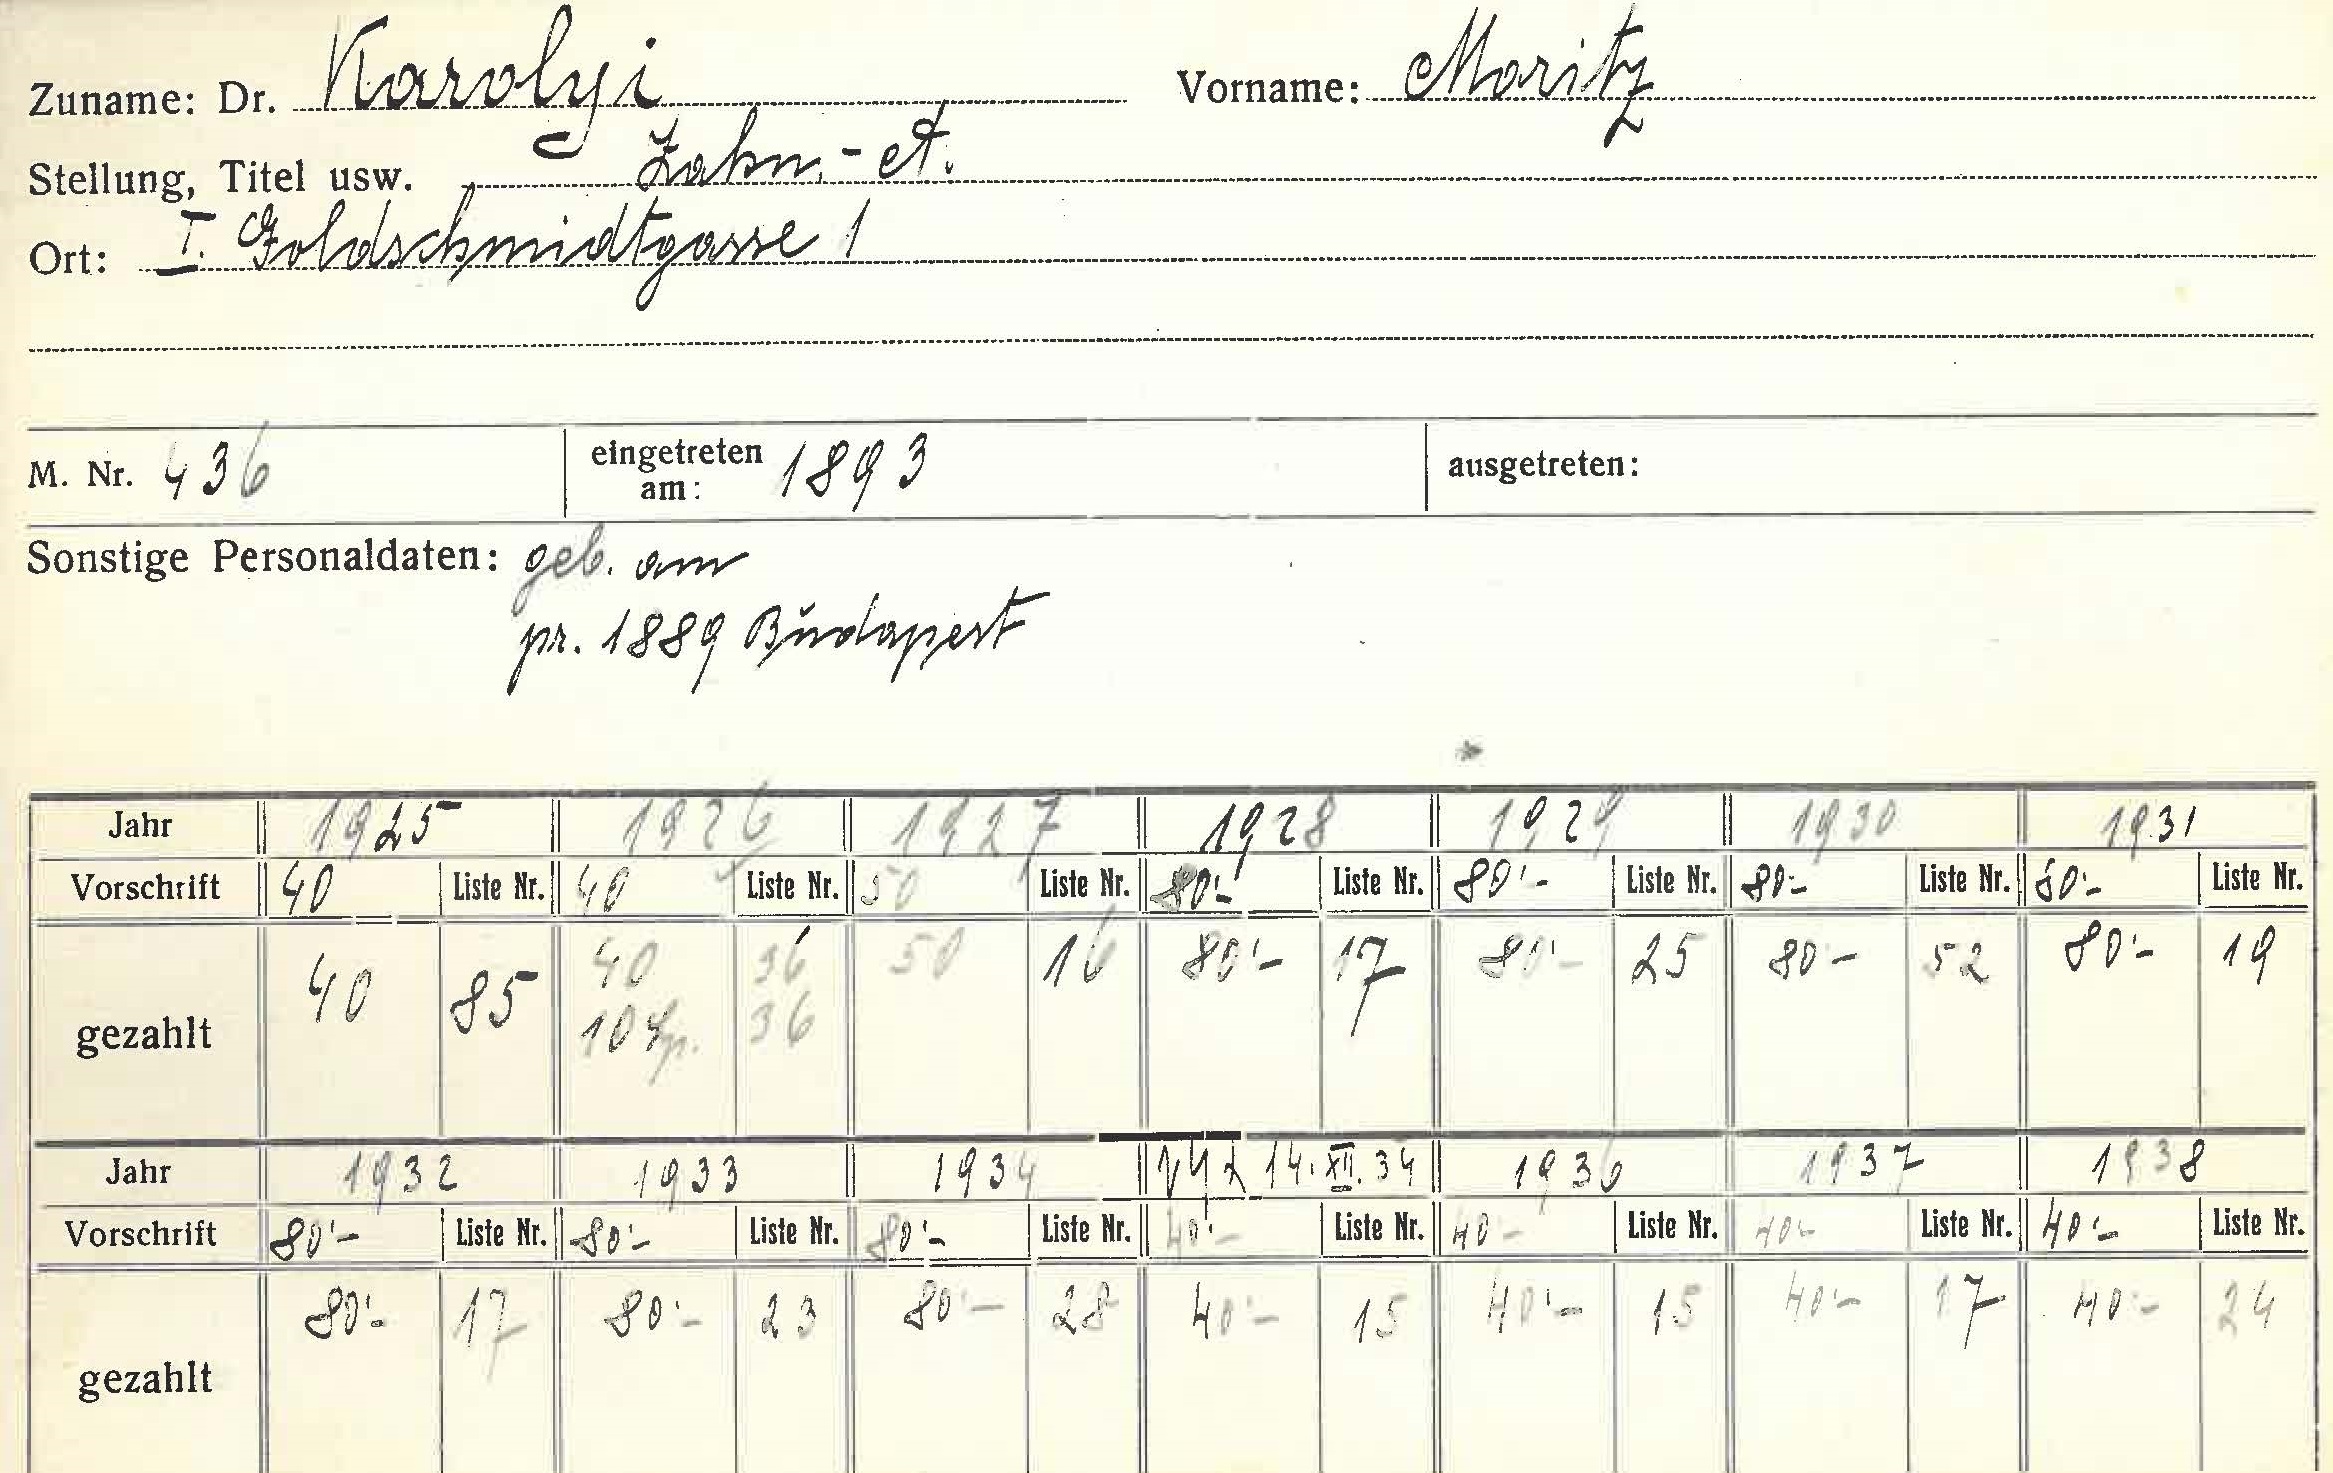 Zuname: Dr. Karolyi Vorname: Moritz
Stellung, Titel usw. Zahn.-A.
Ort: I. Goldschmidtgasse 1
M. Nr. 436 eingetreten am: 1893 ausgetreten:
Sonstige Personaldaten: geb. am
pr. 1889 Budapest
Jahr 1925 1926 1927 1928 1929 1930 1931
Vorschrift 40 Liste Nr. 40 Liste Nr. 50 Liste Nr. 80'- Liste Nr. 80'- Liste Nr. 80'- Liste Nr. 80'- Liste Nr.
gezahlt 40 85 40 36 50 16 80'- 17 80'- 25 80- 52 80'- 19
10 36
Jahr 1932 1933 1934 14.XII.34 1936 1937 1938
Vorschrift 80'- Liste Nr. 80'- Liste Nr. 80'- Liste Nr. 40'- Liste Nr. 40'- Liste Nr. 40'- Liste Nr. 40'- Liste Nr.
gezahlt 80'- 17 80'- 23 80'- 28 40'- 15 40'- 15 40'- 17 40'- 24